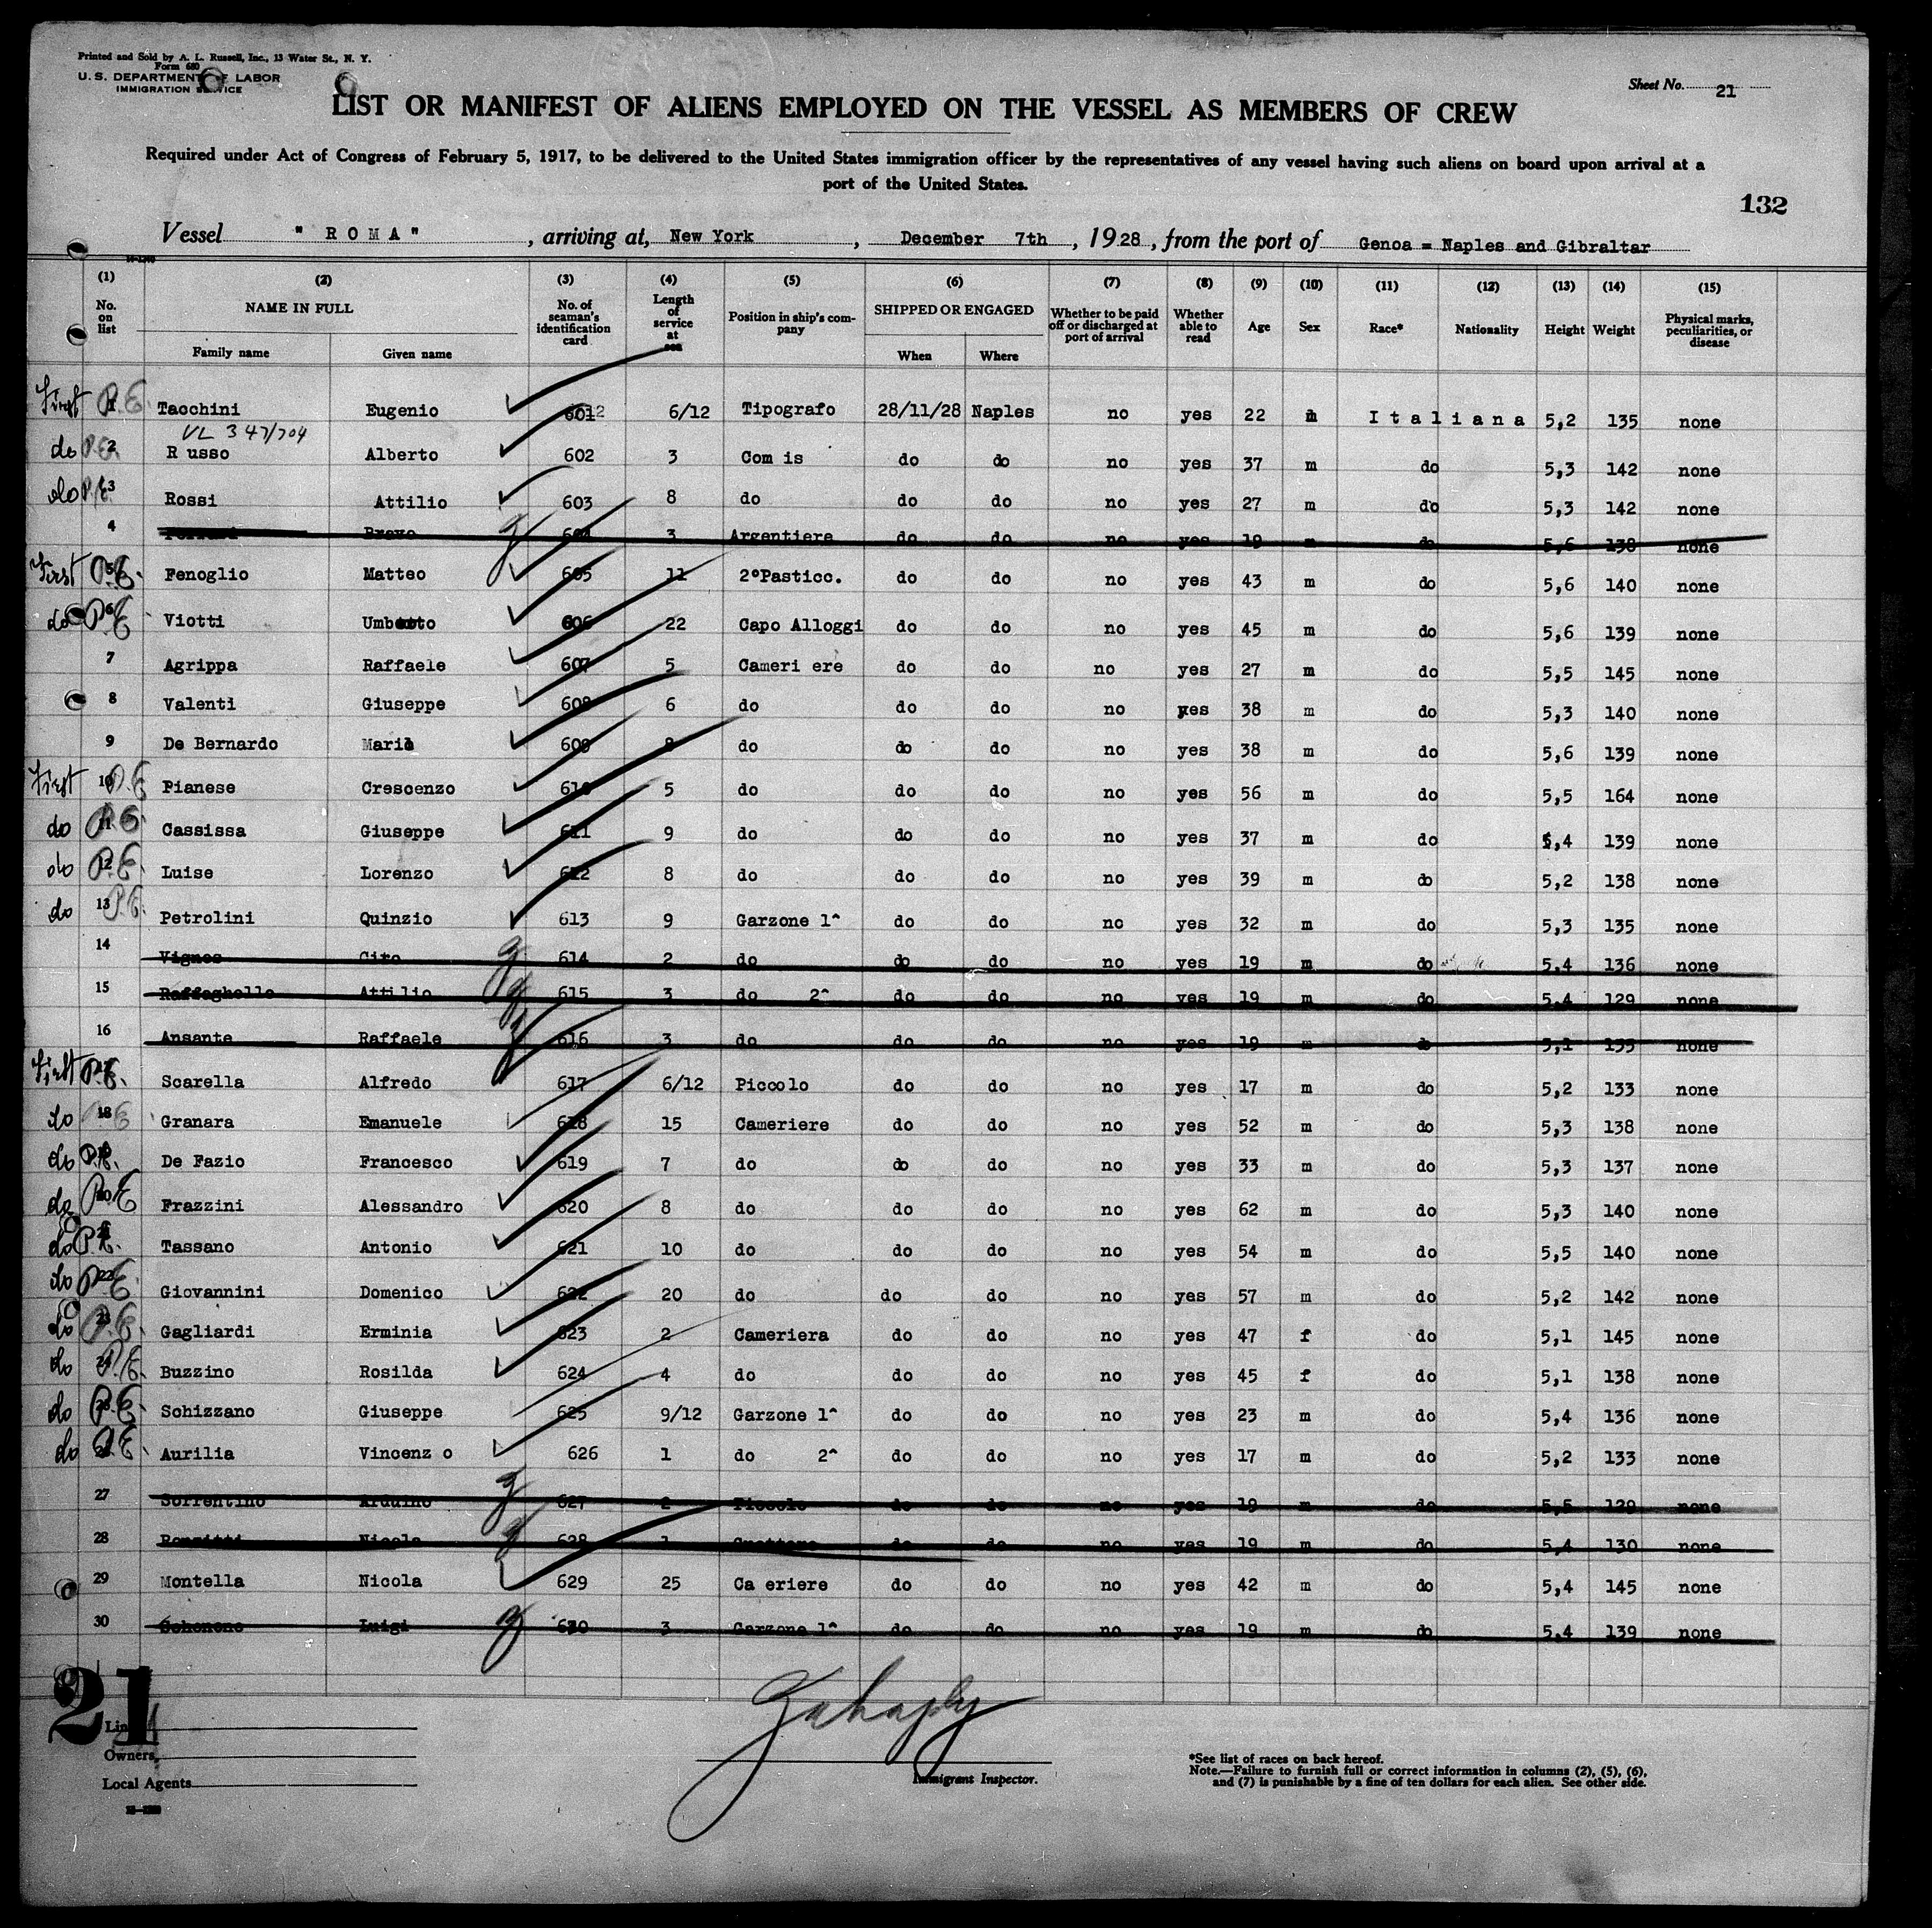 Printed and Sold by A. L. Russell, Inc., 13 Water St., N. Y.
Form 680
U. S. DEPARTMENT OF LABOR
IMMIGRATION SERVICE
Sheet No. 21
LIST OR MANIFEST OF ALIENS EMPLOYED ON THE VESSEL AS MEMBERS OF CREW
Required under Act of Congress of February 5, 1917, to be delivered to the United States immigration officer by the representatives of any vessel having such aliens on board upon arrival at a
port of the United States.
132
Vessel " R O M A " , arriving at, New York , December 7th , 1928 , from the port of Genoa = Naples and Gibraltar
(1) (2) (3) (4) (5) (6) (7) (8) (9) (10) (11) (12) (13) (14) (15)
No. on list NAME IN FULL Family name Given name No. of seaman's identification card Length of service at sea Position in ship's company SHIPPED OR ENGAGED When Where Whether to be paid off or discharged at port of arrival Whether able to read Age Sex Race* Nationality Height Weight Physical marks, peculiarities, or disease
First P.E. 1 Tacchini Eugenio 601 6/12 Tipografo 28/11/28 Naples no yes 22 m I t a l i a n a 5,2 135 none
VL 347/704
do P.E. 2 R usso Alberto 602 3 Com is do do no yes 37 m do 5,3 142 none
do P.E. 3 Rossi Attilio 603 8 do do do no yes 27 m do 5,3 142 none
4 604 3 Argentiere do do no yes 19 m do 5,6 138 none
First P.E. 5 Fenoglio Matteo 605 11 2°Pasticc. do do no yes 43 m do 5,6 140 none
do P.E. 6 Viotti Umberto 606 22 Capo Alloggi do do no yes 45 m do 5,6 139 none
7 Agrippa Raffaele 607 5 Cameri ere do do no yes 27 m do 5,5 145 none
8 Valenti Giuseppe 608 6 do do do no yes 38 m do 5,3 140 none
9 De Bernardo Mario 609 8 do do do no yes 38 m do 5,6 139 none
First P.E. 10 Pianese Crescenzo 610 5 do do do no yes 56 m do 5,5 164 none
do P.E. 11 Cassissa Giuseppe 611 9 do do do no yes 37 m do 5,4 139 none
do P.E. 12 Luise Lorenzo 612 8 do do do no yes 39 m do 5,2 138 none
do P.E. 13 Petrolini Quinzio 613 9 Garzone 1^ do do no yes 32 m do 5,3 135 none
14 Vignos Ciro 614 2 do do do no yes 19 m do 5,4 136 none
15 Raffaghello Attilio 615 3 do 2^ do do no yes 19 m do 5,4 129 none
16 Ansante Raffaele 616 3 do do do no yes 19 m do 5,1 none
First P.E. 17 Scarella Alfredo 617 6/12 Piccolo do do no yes 17 m do 5,2 133 none
do P.E. 18 Granara Emanuele 618 15 Cameriere do do no yes 52 m do 5,3 138 none
do P.E. 19 De Fazio Francesco 619 7 do do do no yes 33 m do 5,3 137 none
do P.E. 20 Frazzini Alessandro 620 8 do do do no yes 62 m do 5,3 140 none
do P.E. 21 Tassano Antonio 621 10 do do do no yes 54 m do 5,5 140 none
do P.E. 22 Giovannini Domenico 622 20 do do do no yes 57 m do 5,2 142 none
do P.E. 23 Gagliardi Erminia 623 2 Cameriera do do no yes 47 f do 5,1 145 none
do P.E. 24 Buzzino Rosilda 624 4 do do do no yes 45 f do 5,1 138 none
do P.E. 25 Schizzano Giuseppe 625 9/12 Garzone 1^ do do no yes 23 m do 5,4 136 none
do P.E. 26 Aurilia Vincenz o 626 1 do 2^ do do no yes 17 m do 5,2 133 none
27 Sorrentino Arduino 627 2 Piccolo do do no yes 19 m do 5,5 129 none
28 Nicola 628 1 do do no yes 19 m do 5,4 130 none
29 Montella Nicola 629 25 Ca eriere do do no yes 42 m do 5,4 145 none
30 Luigi 630 3 Garzone 1^ do do no yes 19 m do 5,4 139 none
21
Line
Owners
Local Agents
Immigrant Inspector.
*See list of races on back hereof.
Note.—Failure to furnish full or correct information in columns (2), (5), (6),
and (7) is punishable by a fine of ten dollars for each alien. See other side.